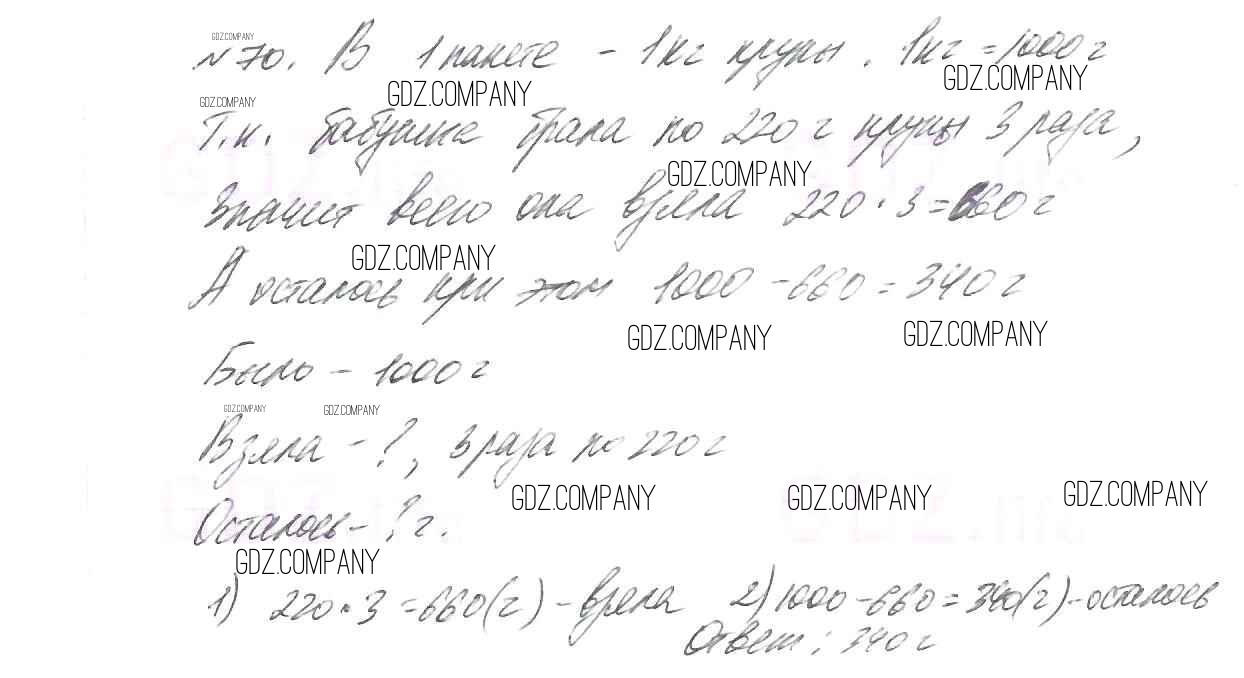 GDZ.COMPANY
№70. В 1 пакете - 1кг крупы. 1кг = 1000 г
GDZ.COMPANY GDZ.COMPANY GDZ.COMPANY
Т.к. бабушка брала по 220 г крупы 3 раза,
GDZ.COMPANY
Значит всего она взяла 220 · 3 = 660 г
GDZ.COMPANY
А осталось при этом 1000 - 660 = 340 г
GDZ.COMPANY GDZ.COMPANY
Было - 1000 г
GDZ.COMPANY GDZ.COMPANY
Взяла - ?, 3 раза по 220 г
GDZ.COMPANY GDZ.COMPANY GDZ.COMPANY
Осталось - ? г.
GDZ.COMPANY
1) 220 · 3 = 660 (г) - взяла 2) 1000 - 660 = 340 (г) - осталось
Ответ: 340 г